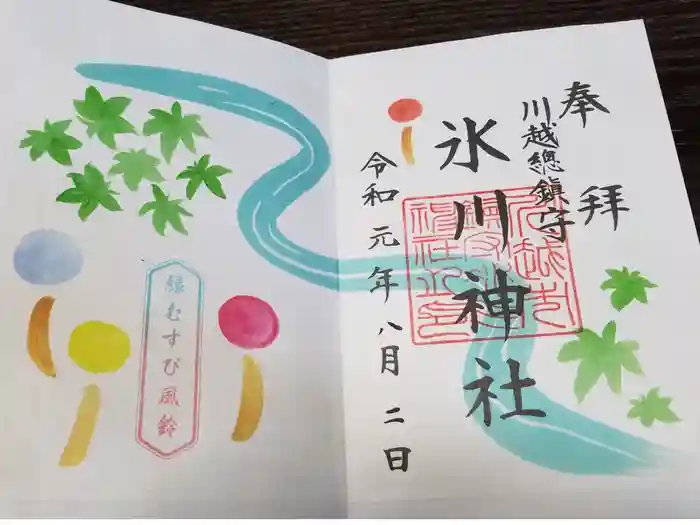 奉拝
川越總鎮守
氷川神社
令和元年八月二日
縁むすび風鈴